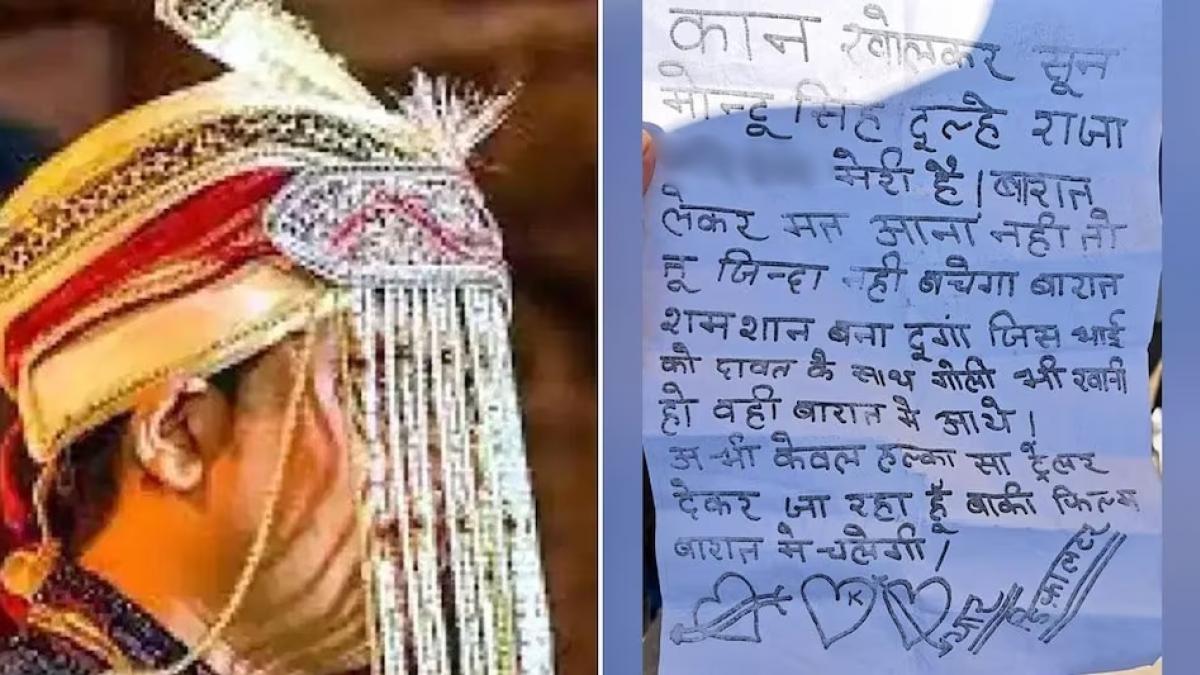 कान खोलकर सून
मोन्दू सिंह दूल्हे राजा
मेरी है। बारात
लेकर मत आना नही तो
तू जिन्दा नही बचेगा बारात
शमशान बना दूगां जिस भाई
को दावत के साथ गोली भी खानी
हो वही बारात मे आये।
अभी केवल हल्का सा ट्रेलर
देकर जा रहा हूँ बाकी फिल्म
बारात मे चलेगी।
K